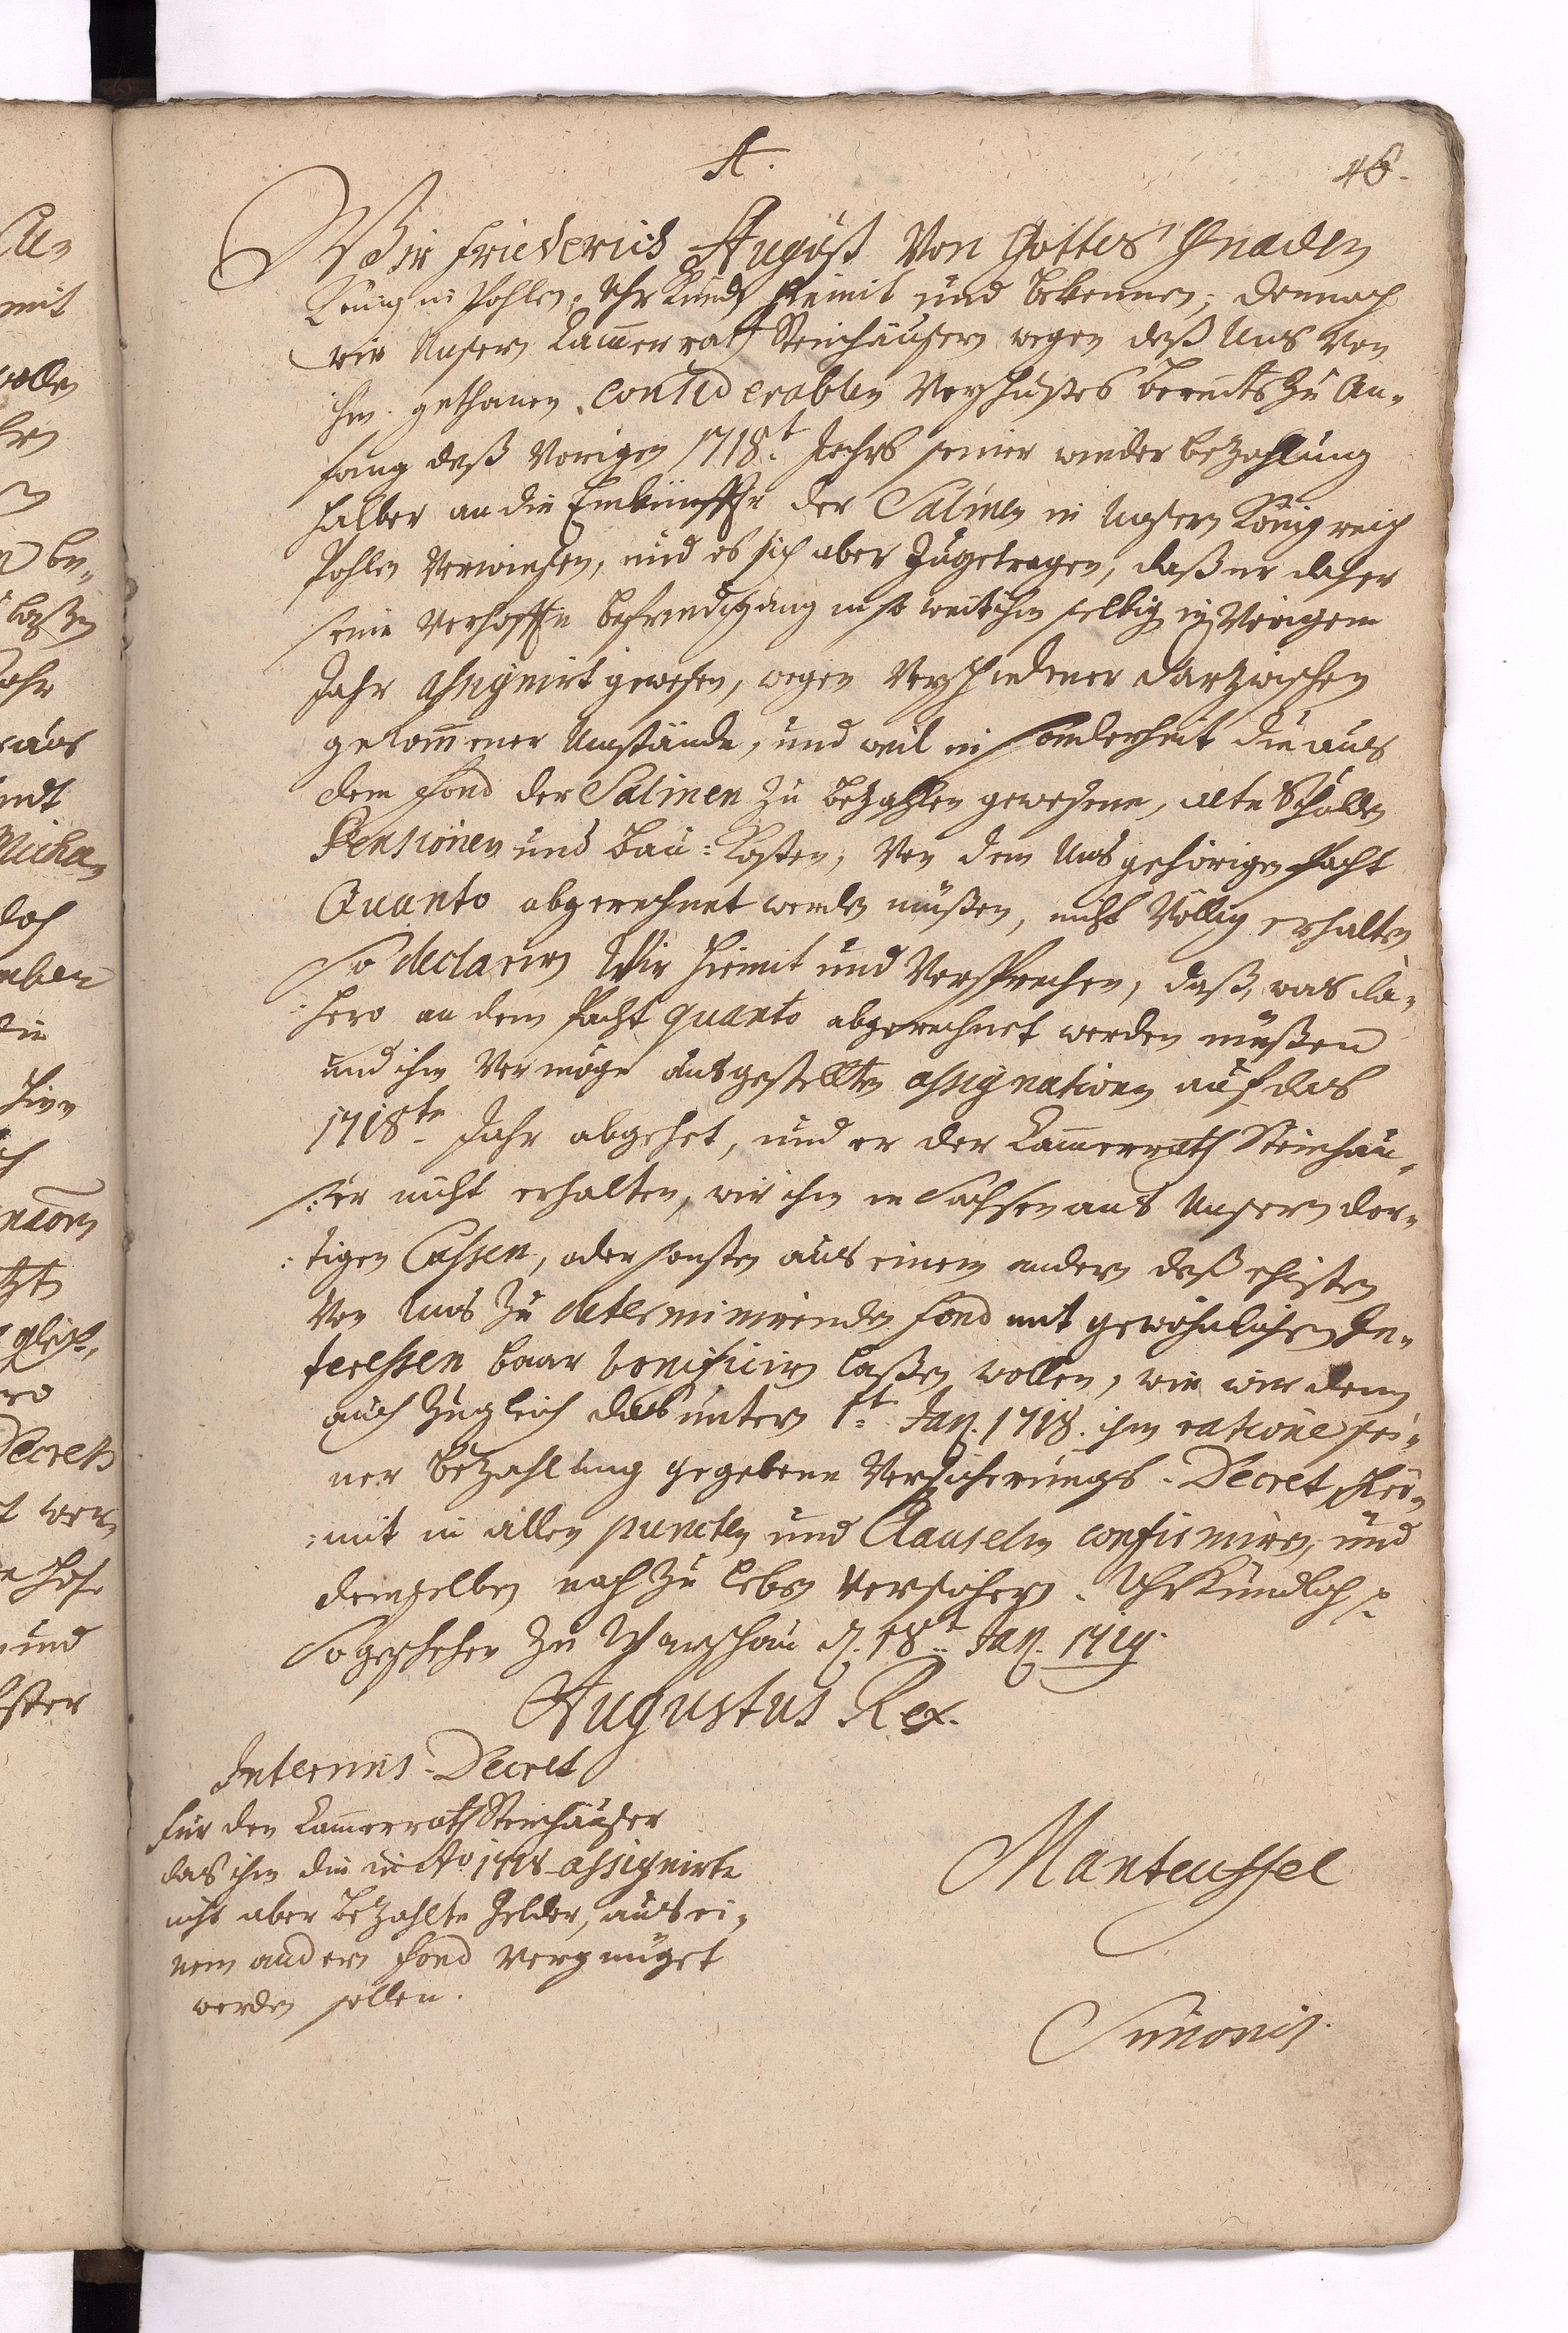 A.
46.
Wir Friederich August Von Gottes Gnaden
König in Pohlen, Uhrkunden hiemit und bekennen, demnach
wir Unserm Cammerrath Steinhäusern wegen deß Uns von
ihm gethanen considerablen Vorschußes bereits zu An-
fang deß vorigen 1718.t Jahrs seiner wieder bezahlung
halber an die Einkünffte der Salinen in Unserm Königreich
Pohlen verwiesen, und es sich aber zugetragen, daß er daher
seine verhoffte befriedigung in so weit ihm selbige in vorigem
Jahr assigniret gewesen, wegen verschiedener darzwischen
gekommener Umstände, und weil in sonderheit die aus
dem Fond der Salinen zu bezahlen gewesene, alte Schulden
Pensionen und Bau-Kosten, von dem Uns gehörigen Pacht
Quanto abgerechnet werden müßen, nicht völlig erhalten
So declariren Wir hiemit und versprechen, daß, was da-
:hero an dem Pacht quanto abgerechnet werden müßen
und ihm vermöge ausgestellten assignationen auf das
1718te Jahr abgehet, und er der Cammerrath Steinhäu-
:ser nicht erhalten, wir ihm in Sachsen aus Unsern dor-
:tigen Cassen, oder sonsten aus einem andern deß ehisten
von Uns zu determinirenden Fond mit gewöhnlichen In-
teressen baar bonificiren laßen wollen, wie wir denn
auch zugleich das unterm 1.t Jan. 1718. ihm ratione sei-
ner bezahlung gegebene Versicherungs-Decret, hier-
:mit in allen puncten und Clauseln confirmiren, und
demselben nach zu leben versichern. Uhrkundlich p.
So geschehen zu Warschau d. 18.t Jan. 1719.
Augustus Rex.
Interims-Decret
für den Cammerrath Steinhäuser
das ihm die in Ao 1718 assignirte
nicht aber bezahlte Gelder, aus ei-
nem andern Fond vergnüget
werden sollen.
Manteuffel
Simonis.